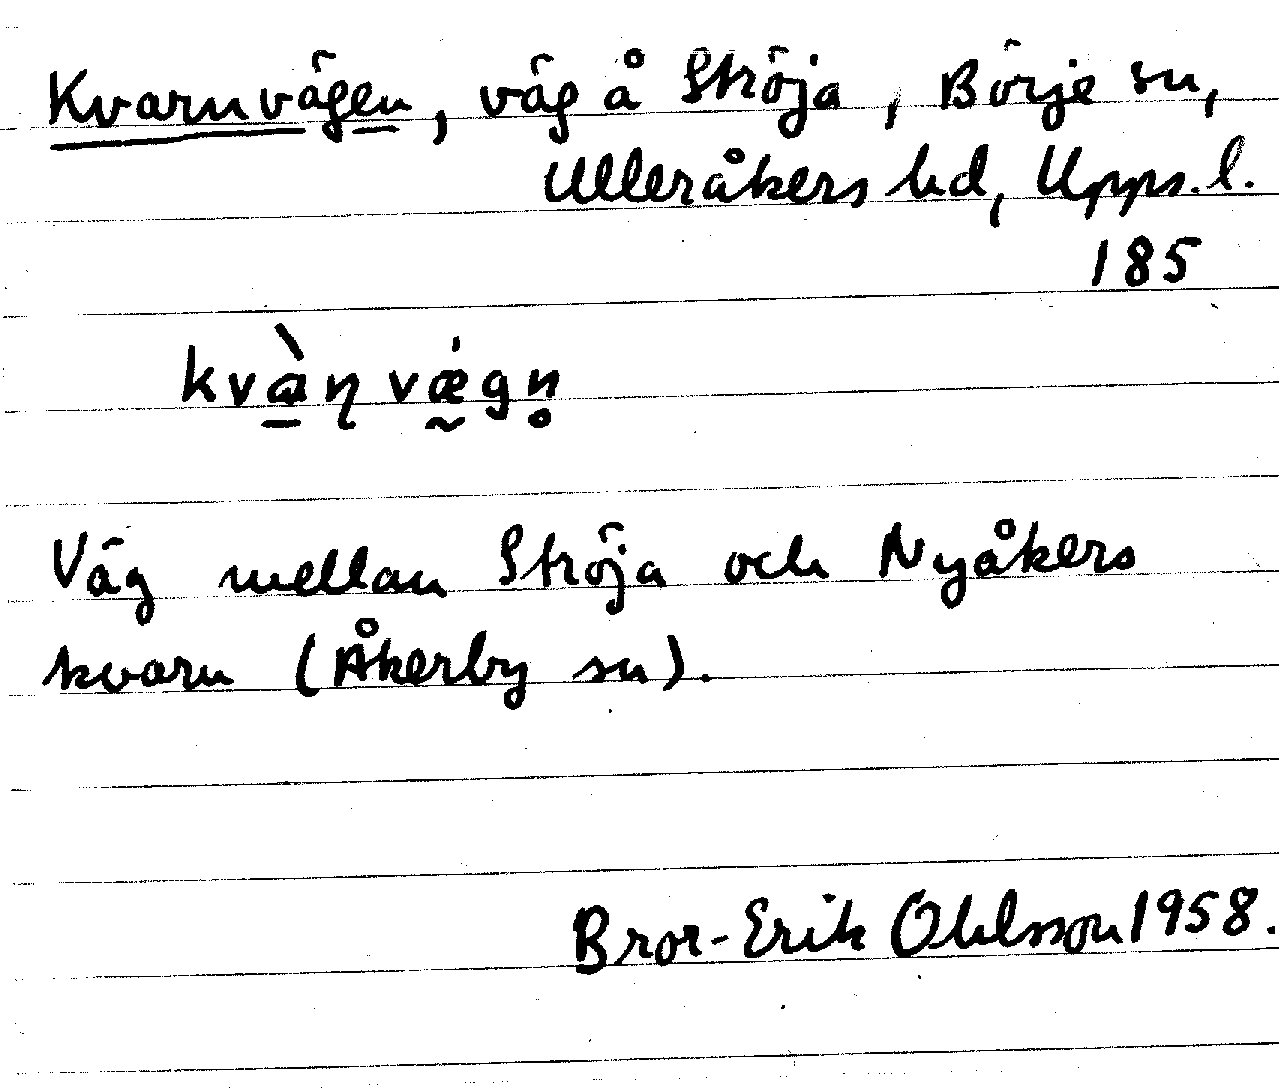 Kvarnvägen, väg å Ströja, Börje sn,
Ulleråkers hd, Upps. l.
185
kvàɳvǽgn̥
Väg mellan Ströja och Nyåkers
kvarn (Åkerby sn).
Bror-Erik Ohlsson 1958.